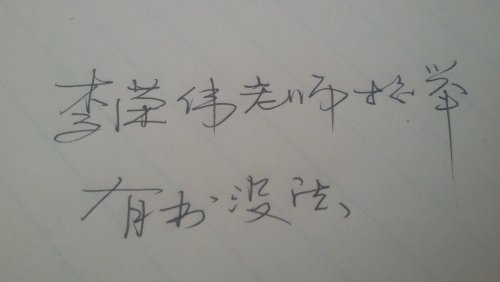 李荣伟老师检举
有书没法、